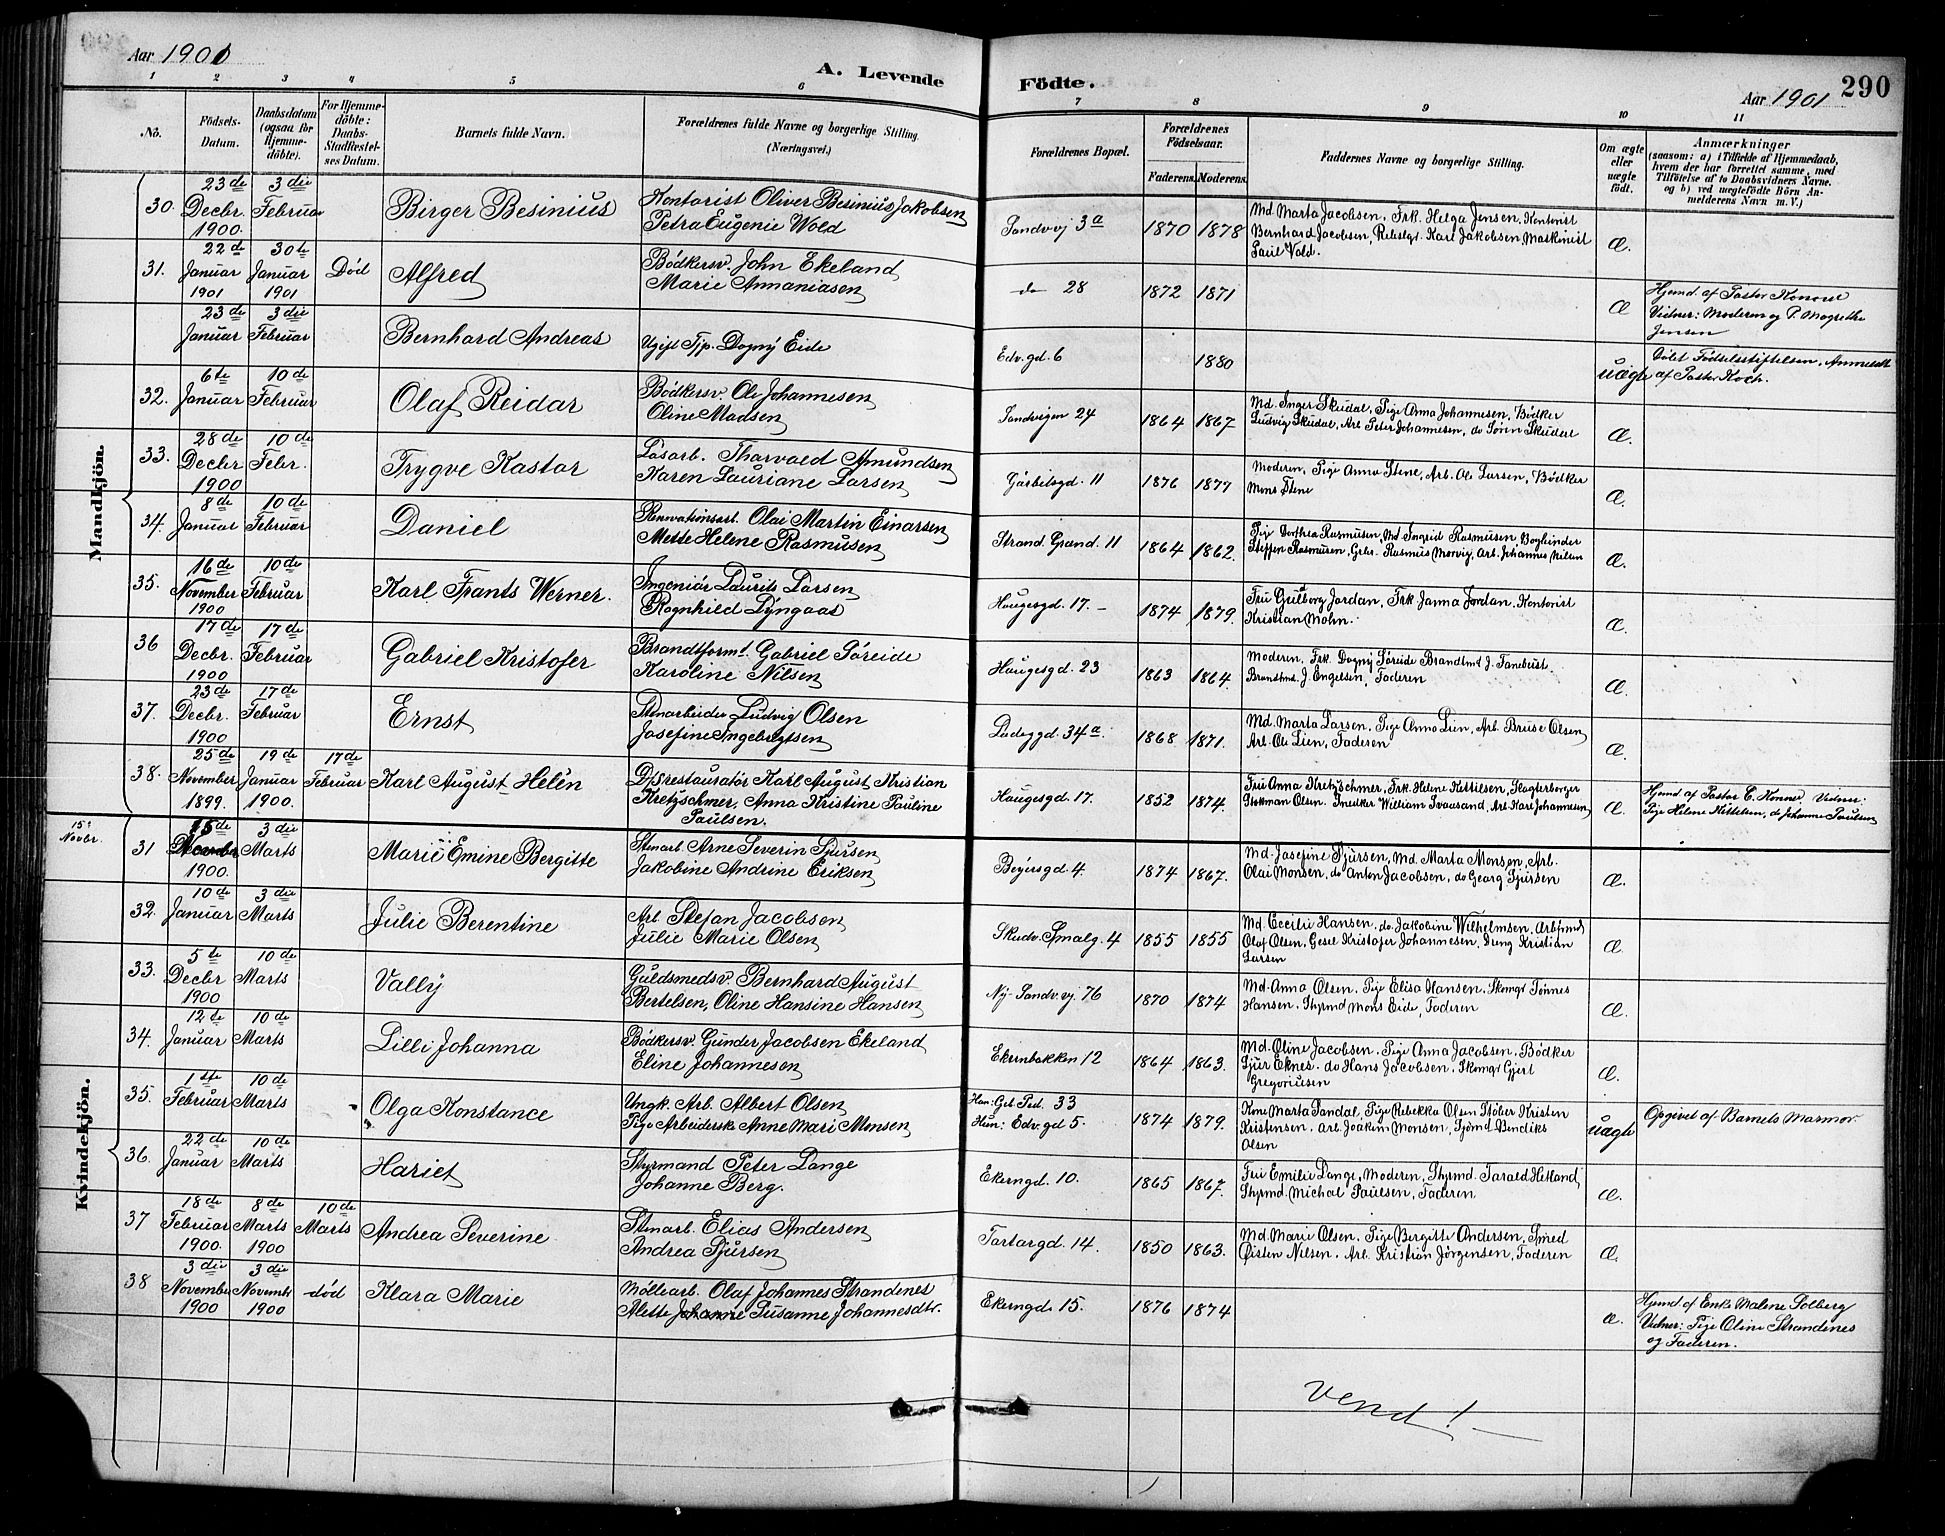 Aar 1901
A. Levende
Födte.
Aar 1901
290
1 2 3 4 5 6 7 8 9 10 11
No.
Födsels-
Datum.
Daabsdatum
(ogsaa for
Hjemme-
döbte).
For Hjemme-
döbte:
Daabs-
Stadfæstel-
ses Datum.
Barnets fulde Navn.
Forældrenes fulde Navne og borgerlige Stilling.
(Næringsvei.)
Forældrenes Bopæl.
Forældrenes
Födselsaar.
Faderens. Moderens.
Faddernes Navne og borgerlige Stilling.
Om ægte
eller
uægte
födt.
Anmærkninger
(saasom: a) i Tilfælde af Hjemmedaab,
hvem der har forrettet samme, med
Tilföielse af to Daabsvidners Navne,
og b) ved uægtefödte Börn An-
melderens Navn m. V.)
Mandkjön.
30. 23de Decbr. 1900. 3die Februar Birger Besinius
Kontorist Oliver Besinius Jakobsen
Petra Eugenie Wold
Sandv.vj 3a 1870 1878
Md. Marta Jacobsen, Frk. Helga Jensen, Kontorist
Bernhard Jacobsen, Rebslgr. Karl Jakobsen, Maskinist
Paul Vold.
Æ.
31. 22de Januar 1901 30te Januar 1901 Död Alfred
Bödkersv. John Ekeland
Marie Annaniasen
do 28 1872 1871
Æ
Hjemd. af Pastor Konow
Vidner: Moderen og P. Magrethe
Jensen
23de Januar 3die Februar Bernhard Andreas
Ugift Tjp. Dagny Eide
Edv. gd. 6 1880
uægte
Födselsstiftelsen, Anmeldt
af Pastor Koch.
32. 6te Januar 10de Februar Olaf Reidar
Bödkersv. Ole Johannesen
Oline Madsen
Sandvigen 24 1864 1867
Md. Inger Skudal, Pige Anna Johannesen, Bödker
Ludvig Skudal, Arb. Peter Johannesen, do Sörin Skudal
Æ.
33. 28de Decbr 1900 10de Febr. Trygve Kastor
Løsarb. Tharvald Amundsen
Karen Lauriane Larsen
Gårbelsgd. 11 1876 1877
Moderen, Pige Anna Stene, Arb. Ole Larsen, Bödker
Mons Stene
Æ.
34. 8de Januar 10de Februar Daniel
Renovationsarb. Olai Martin Einarsen
Mette Helene Rasmusen
Strand. Grand. 11 1864 1862.
Pige Dorthea Rasmusen, Md Ingrid Rasmusen, Bogbinder
Steffen Rasmusen, Rasmus Morvig, Arb. Johannes
Æ.
35. 16de November 1900 10de Februar Karl Frants Werner.
Ingeniör Laurits Larsen
Ragnhild Lyngaas
Haugesgd. 17. 1874 1879.
Fru Gulborg Jordan, Frk Janna Jordan, Kontorist
Kristian Mohn.
Æ.
36 17de Decbr. 1900 17de Februar Gabriel Kristofer
Brandform. Gabriel Søreide
Karoline Nilsen
Haugesgd. 23 1863 1864.
Moderen, Frk. Dagny Søreide Brandmt J. Tanebust
Brandmd. J. Engelsen, Faderen
Æ.
37. 23de Decbr. 1900 17de Februar Ernst
Stenarbeider Ludvig Olsen
Josefine Ingebrigtsen
Ladeggd. 34a. 1868 1871.
Md. Marta Larsen, Pige Anna Lien, Arb. Olsen
Arb. Ole Lien, Faderen
Æ.
38. 25de November 1899. 19de Januar 1900. 17de Februar Karl August Helén
D/Srestauratør Karl August Kristian
Kretzschmer, Anna Kristine Pauline
Paulsen.
Haugesgd 17. 1852 1874.
Fru Anna Kretzschmer, Frk. Helene Kittilsen, Slagterborger
Olsen, Snedker William Svausand, Arb. Karl Johannesen
Æ.
Hjemd af Pastor C. Konow. Vidner:
Pige Helene Kittelsen, do Johanne Paulsen
Kvindekjön.
15. Novbr.
31 15de 1900. 3die Marts Marie Emine Bergitte
Stenarb. Arne Severin Sjursen
Jakobine Andrine Eriksen
Beyersgd 4. 1874 1867.
Md. Josefine Sjursen, Md. Marta Monsen, Arb.
Olai Monsen, do Anton Jacobsen, do Georg Sjursen
Æ.
32. 10de Januar 3die Marts Julie Berentine
Arb. Stefan Jacobsen
Julie Marie Olsen
Skudv. Smalg. 4 1855 1855
Md. Eccilie Hansen, do. Jakobine Wilhelmsen, Arbfmd
Olaf Olsen, Gesel Kristofer Johannesen, Kristian
Larsen
Æ.
33. 5te Decbr 1900 10de Marts Vally
Guldsmedsv. Bernhard August
Bertelsen, Oline Hansine Hansen
Ny-Sandv.vj 76 1870 1874
Md. Anna Olsen, Pige Elisa Hansen, Skomgr Tönnes
Hansen, Styrmd Mons Eide, Faderen
Æ.
34. 12te Januar 10de Marts Lilli Johanna
Bödkersv. Gunder Jacobsen Ekeland
Eline Johannesen
Ekernbakken 12 1864 1863.
Md. Oline Jacobsen, Pige Anna Jacobsen, Bödker
Sjur Eknes, do Hans Jacobsen, Skomgr Gjert
Gregoriusen
Æ.
35. 1ste Februar 10de Marts Olga Konstance
Ungk. Arb. Albert Olsen
Pige Arbeiderske Anne Mari Monsen
Han: Gjet. 33
Hun: Edv. gd 5. 1874 1879.
Kone Marta Sandal, Pige Rebekka Olsen Støber Kristen
Kristensen, Arb. Joakim Monsen, Sjömd Bendiks
Olsen
uægte
Opgivet af Barnets Mormor.
36. 22de Januar 10de Marts Hariet
Styrmand Peter Lange
Johanne Berg.
Ekerngd. 10. 1865 1867.
Fru Emilie Lange, Moderen, Styrmd. Tarald Hetland,
Styrmd. Michal Paulsen, Faderen
Æ.
37 18de Februar 1900. 8de Marts 1900 10de Marts Andrea Severine
Stenarb. Elias Andersen
Andrea Sjursen
Tartargd. 14. 1850 1863.
Md. Marie Olsen, Pige Bergitte Andersen, Smed
Øisten Nilsen, Arb. Kristian Jörgensen, Faderen
Æ.
38 3die November 1900 3die Novembr 1900 død Klara Marie
Møllearb. Olaf Johannes Strandenes
Alette Susanne Johannesdtr.
Ekerngd. 15. 1876 1874
Æ.
Hjemd af Enke Malene Solberg
Vidner: Pige Oline Strandenes
og Faderen.
Vend!